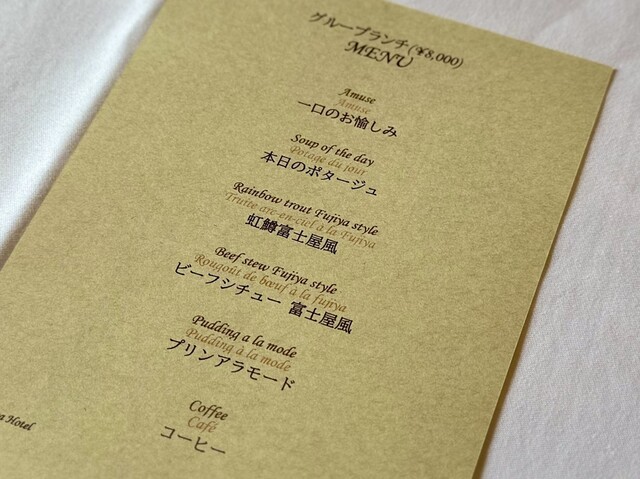 グループランチ(¥8,000)
MENU
Amuse
Amuse
一口のお愉しみ
Soup of the day
Potage du jour
本日のポタージュ
Rainbow trout Fujiya style
Truite arc-en-ciel à la Fujiya
虹鱒富士屋風
Beef stew Fujiya style
Rougoût de bœuf à la fujiya
ビーフシチュー 富士屋風
Pudding a la mode
Pudding à la mode
プリンアラモード
Coffee
Café
コーヒー
a Hotel